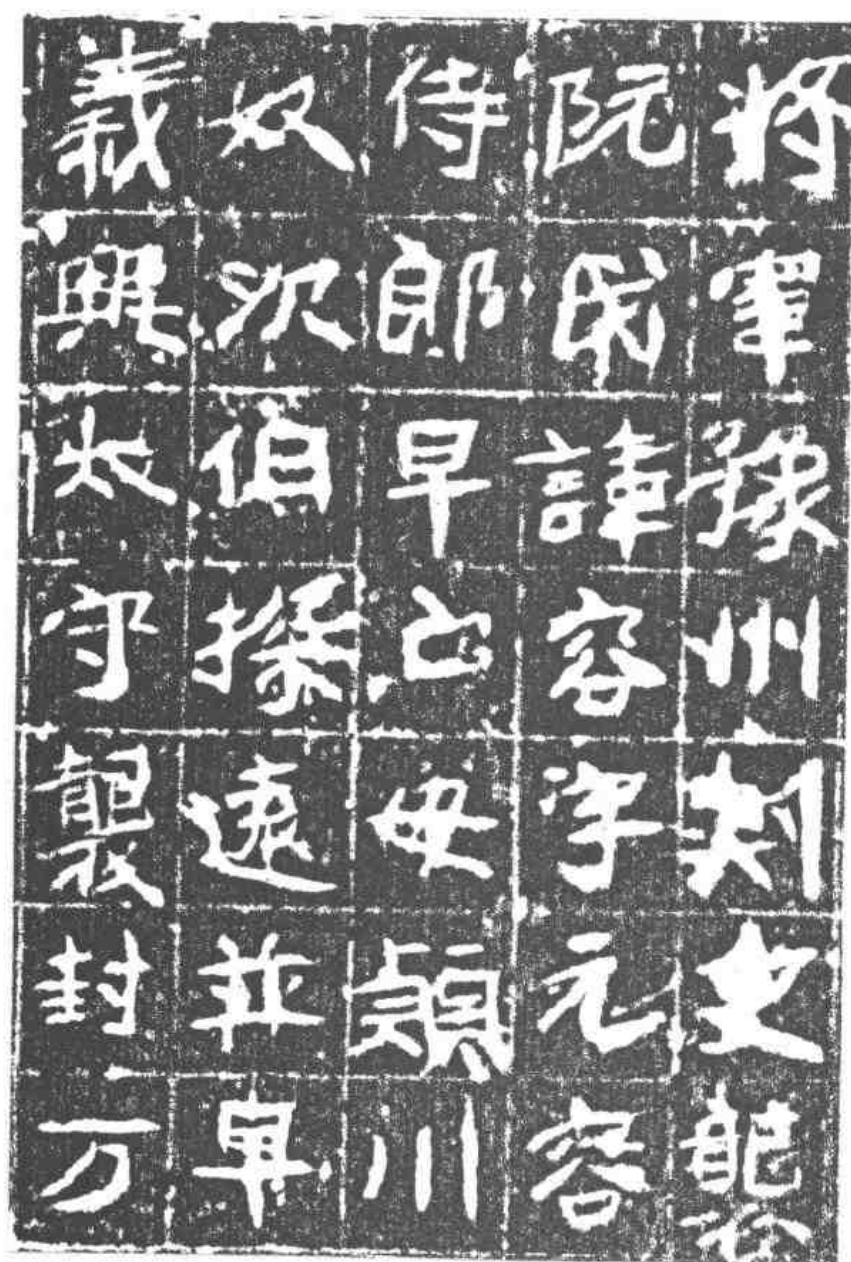 將軍豫州刺史
阮氏諱容字元容
侍郎早亡母潁川
奴次伯探遠並早
義興太守襲封万